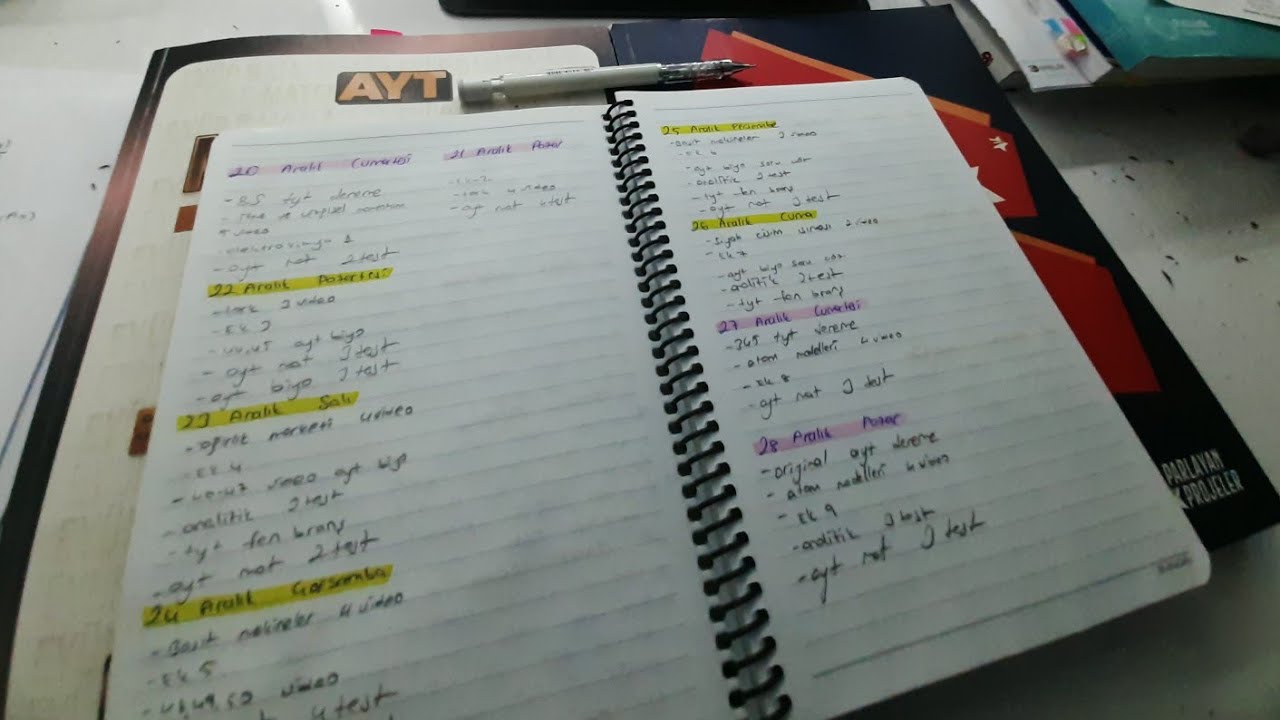 AYT
20 Aralık Cumartesi
- 85 tyt deneme
4 video
- ayt mat 2 test
21 Aralık Pazar
- Ek 2
- tork 4 video
- ayt mat 4 test
22 Aralık Pazartesi
- tork 3 video
- Ek 3
- 44.45 ayt biyo
- ayt mat 3 test
- ayt biyo 3 test
23 Aralık Salı
- ağırlık merkezi 4 video
- Ek 4
- 46.47 video ayt biyo
- analitik 3 test
- tyt fen branş
- ayt mat 2 test
24 Aralık Çarşamba
- Basit makineler 4 video
- Ek 5
video
4 test
25 Aralık Perşembe
- Basit makineler 3 video
- Ek 6
- ayt biyo soru
- analitik 3 test
- tyt fen branş
- ayt mat 3 test
26 Aralık Cuma
- siyah cisim ışıması 2 video
- Ek 7
- ayt biyo soru çöz
- analitik 3 test
- tyt fen branş
27 Aralık Cumartesi
- 345 tyt deneme
- atom modelleri 4 video
- Ek 8
- ayt mat 3 test
28 Aralık Pazar
- original ayt deneme
- atom modelleri 4 video
- Ek 9
- analitik 3 test
- ayt mat 3 test
PARLAYAN
PROJELER